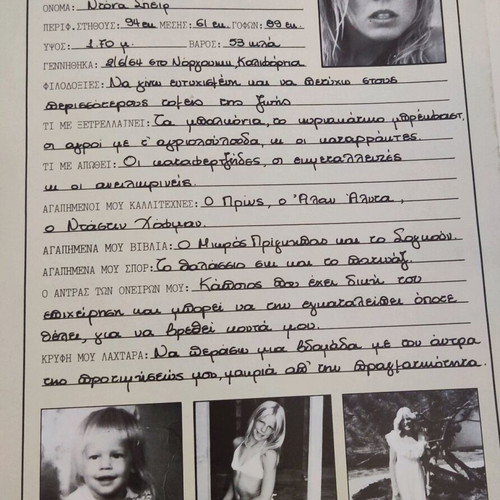 ΟΝΟΜΑ: Ντόνα Σπειρ
ΠΕΡΙΦ.ΣΤΗΘΟΥΣ: 94 εκ. ΜΕΣΗΣ: 61 εκ. ΓΟΦΩΝ: 89 εκ.
ΥΨΟΣ: 1.70 μ. ΒΑΡΟΣ: 53 κιλά
ΓΕΝΝΗΘΗΚΑ: 2/6/64 στο Νόργουωκ, Καλιφόρνια
ΦΙΛΟΔΟΞΙΕΣ: Να γίνω ευτυχισμένη και να πετύχω στους
περισσότερους τομείς της ζωής
ΤΙ ΜΕ ΞΕΤΡΕΛΛΑΙΝΕΙ: Τα μπαλκόνια, το κυριακάτικο μπρέκφαστ,
οι αγροί με τ' αγριολούλουδα, κι οι καταρράκτες
ΤΙ ΜΕ ΑΠΩΘΕΙ: Οι καταφερτζήδες, οι εκμεταλλευτές
κι οι ανειλικρινείς.
ΑΓΑΠΗΜΕΝΟΙ ΜΟΥ ΚΑΛΛΙΤΕΧΝΕΣ: Ο Πρινς, ο Άλαν Άλντα,
ο Ντάστιν Χόφμαν.
ΑΓΑΠΗΜΕΝΑ ΜΟΥ ΒΙΒΛΙΑ: Ο Μικρός Πρίγκηπας και το Σογκούν.
ΑΓΑΠΗΜΕΝΑ ΜΟΥ ΣΠΟΡ: Το θαλάσσιο σκι και το πατινάζ.
Ο ΑΝΤΡΑΣ ΤΩΝ ΟΝΕΙΡΩΝ ΜΟΥ: Κάποιος που έχει δική του
επιχείρηση και μπορεί να την εγκαταλείπει όποτε
θέλει, για να βρεθεί κοντά μου.
ΚΡΥΦΗ ΜΟΥ ΛΑΧΤΑΡΑ: Να περάσω μια βδομάδα με τον άντρα
της προτιμήσεώς μου, μακριά απ' την πραγματικότητα.